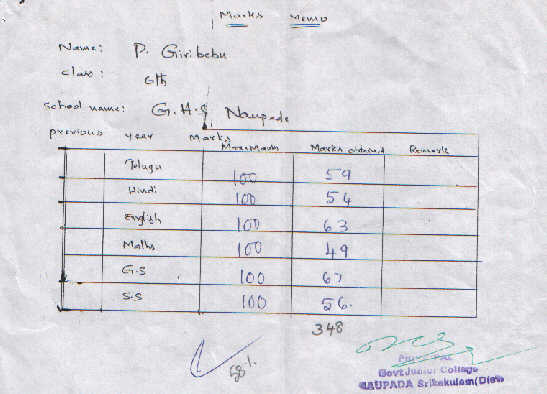 Marks Memo
Name: P. Giribabu
class: 6th
School name: G.H.S Naupada
previous year Marks
Max Marks Marks obtained Remark
Telugu 100 59
Hindi 100 54
English 100 63
Maths 100 49
G.S 100 67
S.S 100 56.
348
58%
Govt Junior College
NAUPADA Srikakulam(Dist)